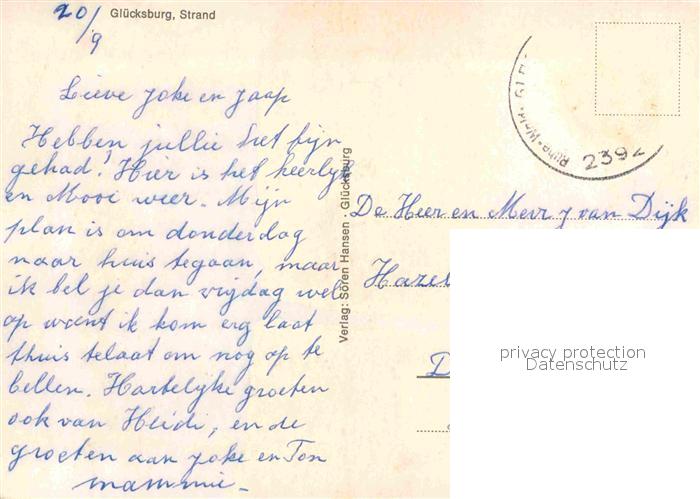 20/9
Glücksburg, Strand
Lieve Joke en Jaap
Hebben jullie het fijn
gehad! Hier is het heerlijk
en Mooi weer. Mijn
plan is om donderdag
naar huis tegaan, maar
ik bel je dan vrijdag wel
op want ik kom erg laat
thuis telaat om nog op te
bellen. Hartelijke groeten
ook van Heidi, en de
groeten aan Joke en Ton
mammie.
Verlag: Sören Hansen · Glücksburg
2392
De Heer en Mevr J van Dijk
Hazel
D
privacy protection
Datenschutz